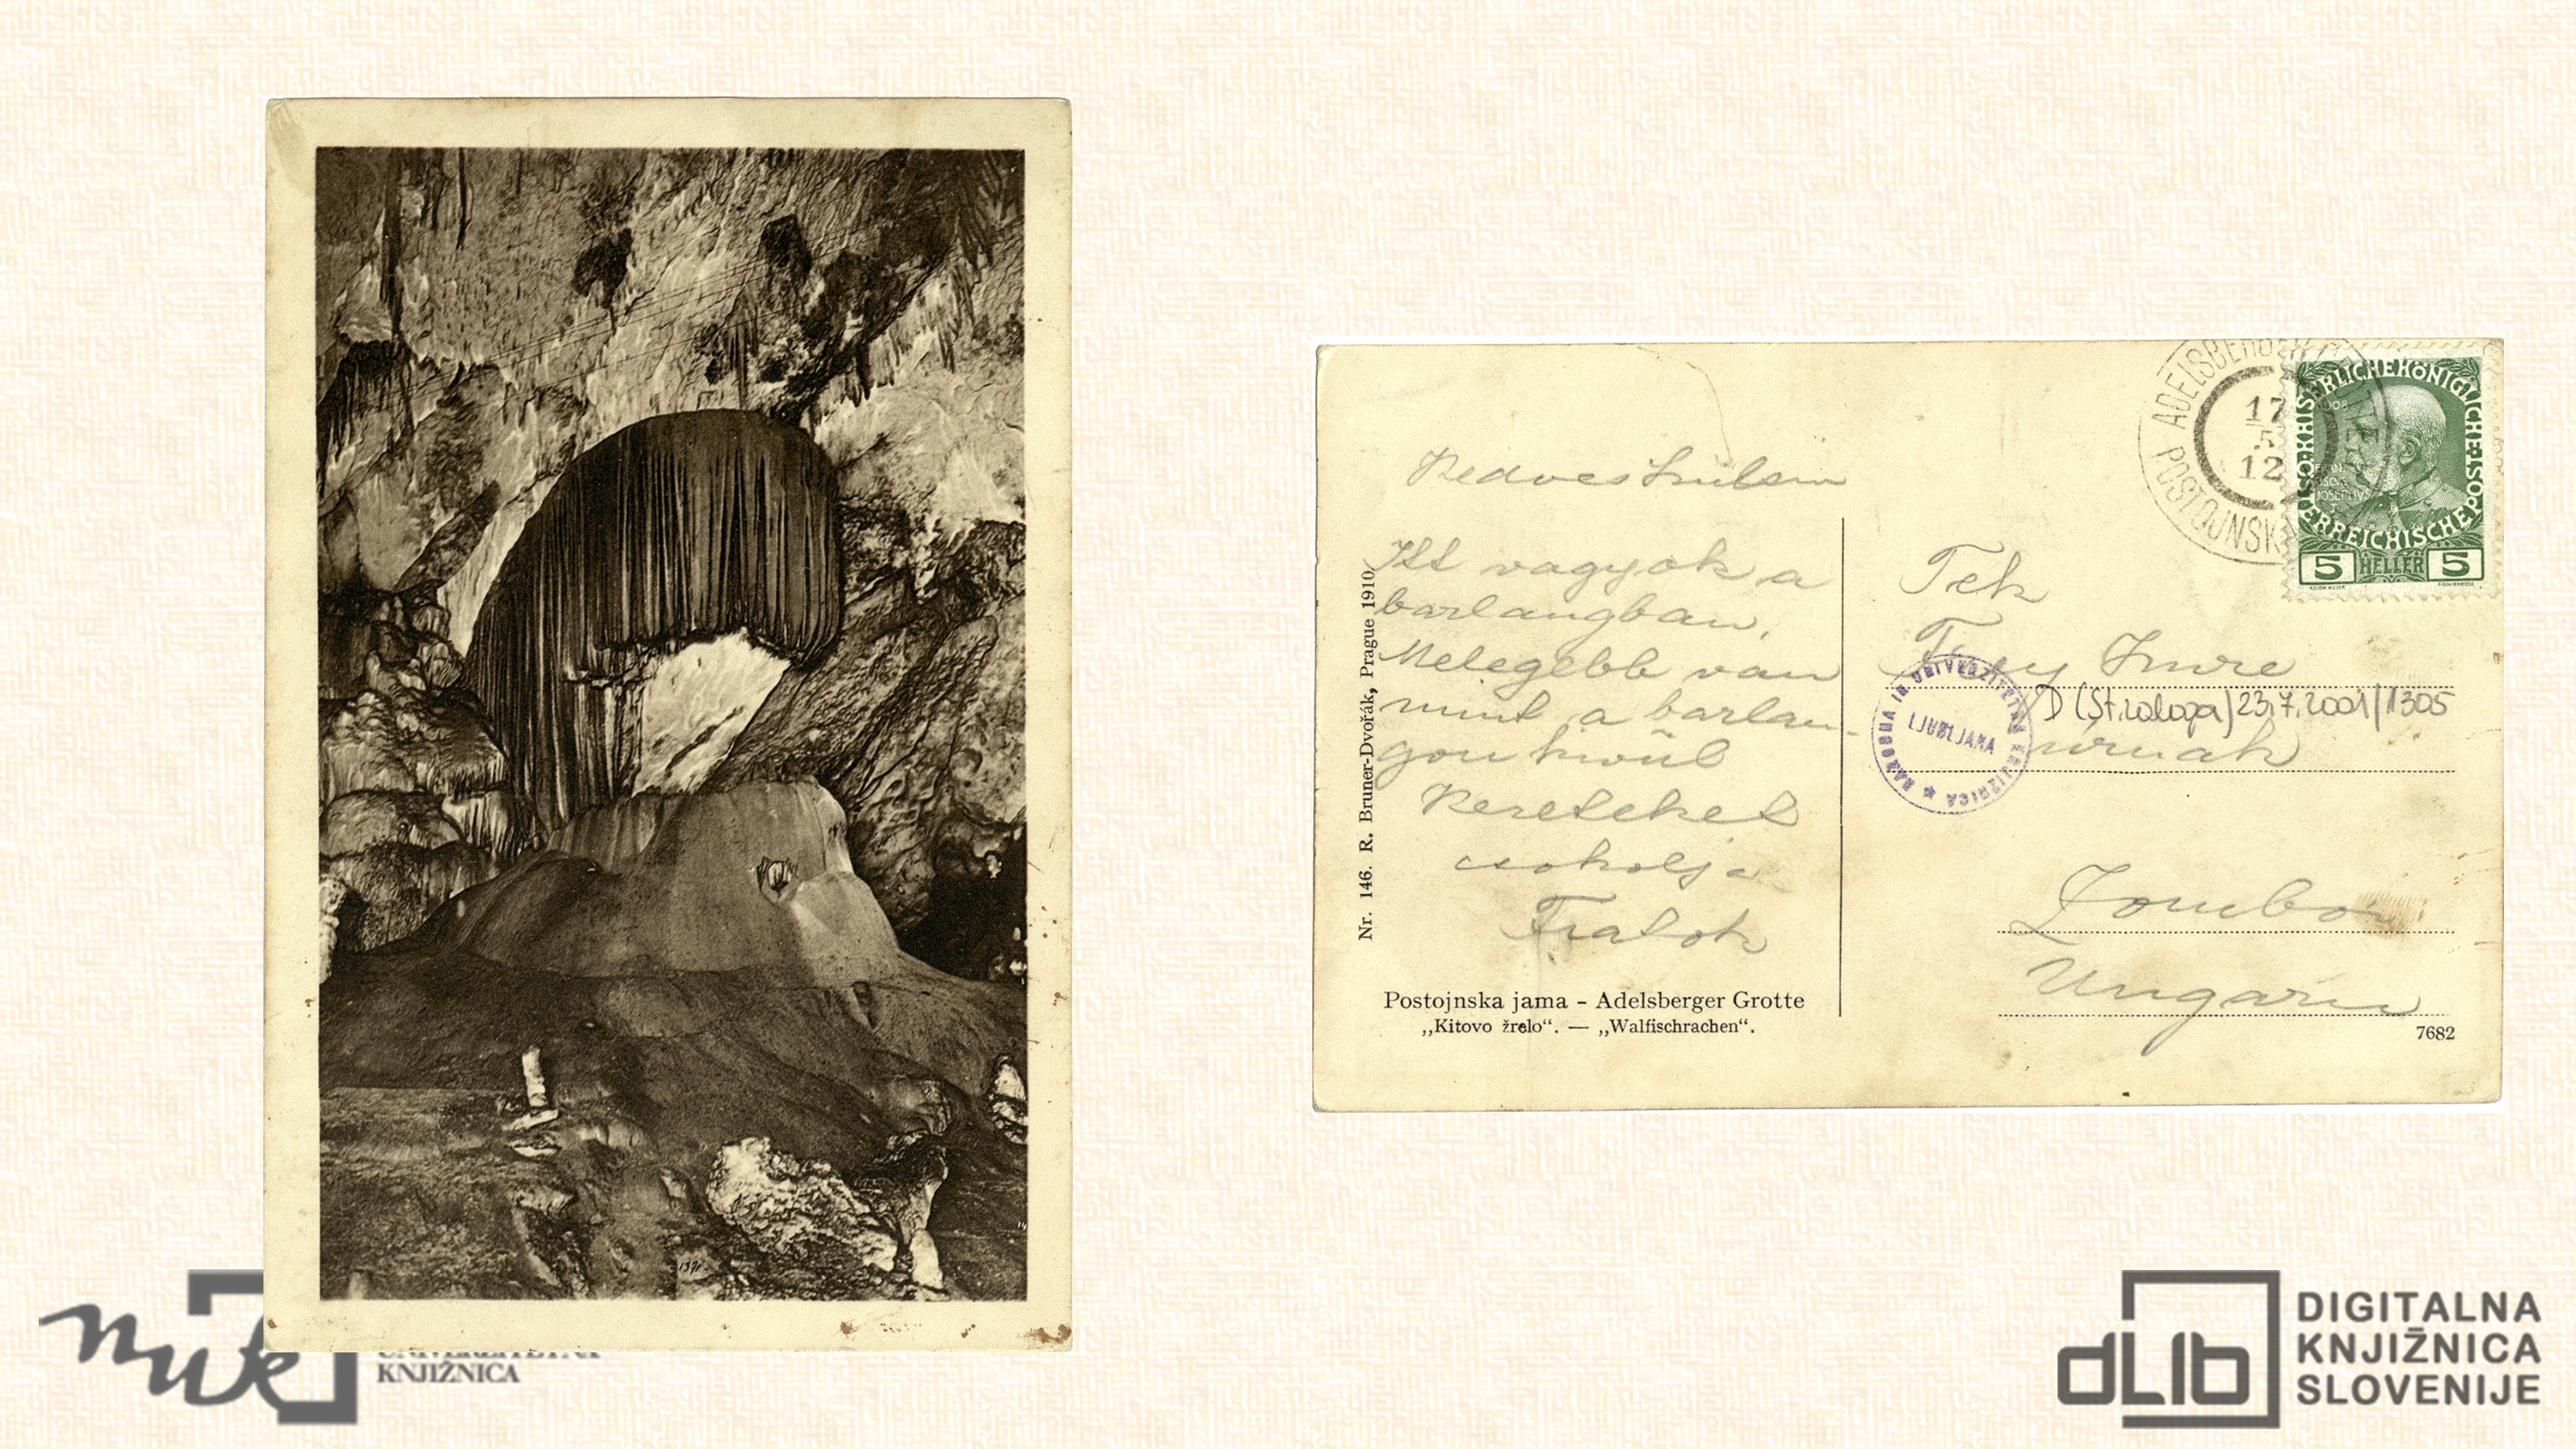 Kedves Szüleim
Itt vagyok a
barlangban.
Melegebb van
mint a barlan-
gon kivül
Kezeteket
csokolja
Fiatok
Nr. 146. R. Bruner-Dvořák, Prague 1910
Postojnska jama - Adelsberger Grotte
„Kitovo žrelo“. — „Walfischrachen“.
ADELSBERGER
POSTOJNSK
17
5
12
KAISERLICHE KÖNIGLICHE
ÖSTERREICHISCHE POST
5 HELLER 5
Tek
Imre
D (Št. zaloga) 23.7.2001/1305
urnak
NARODNA IN UNIVERZITETNA KNJIŽNICA
LJUBLJANA
Zombor
Ungarn
7682
nuk
UNIVERZITETNA
KNJIŽNICA
dLib
DIGITALNA
KNJIŽNICA
SLOVENIJE